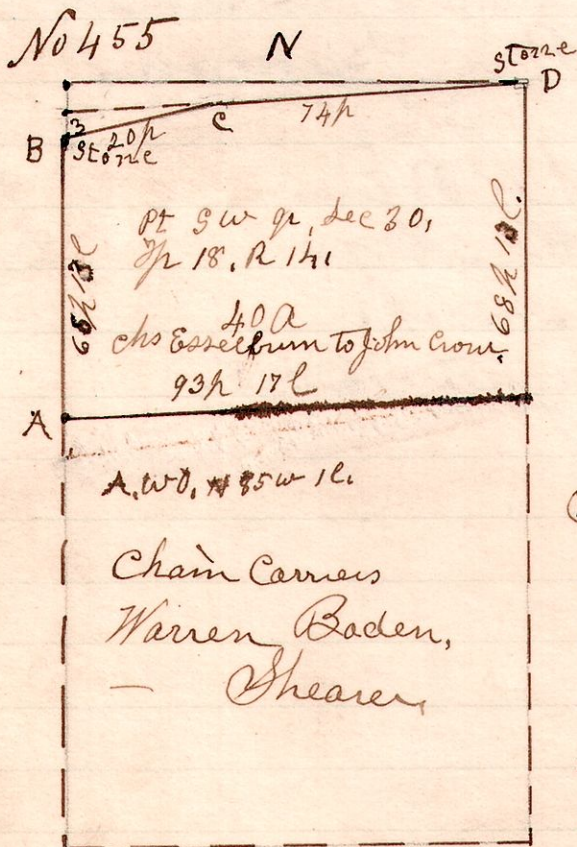 No 455
N
Stone
D
3
20p
C
74p
B
Stone
Pt SW qr, Sec 30,
Tp 18, R 14,
40 A
Chs Esselburn to John Crow.
93p 17l
A
A, WO, N 85 W 1l.
Chain Carriers
Warren Boden,
— Shearer